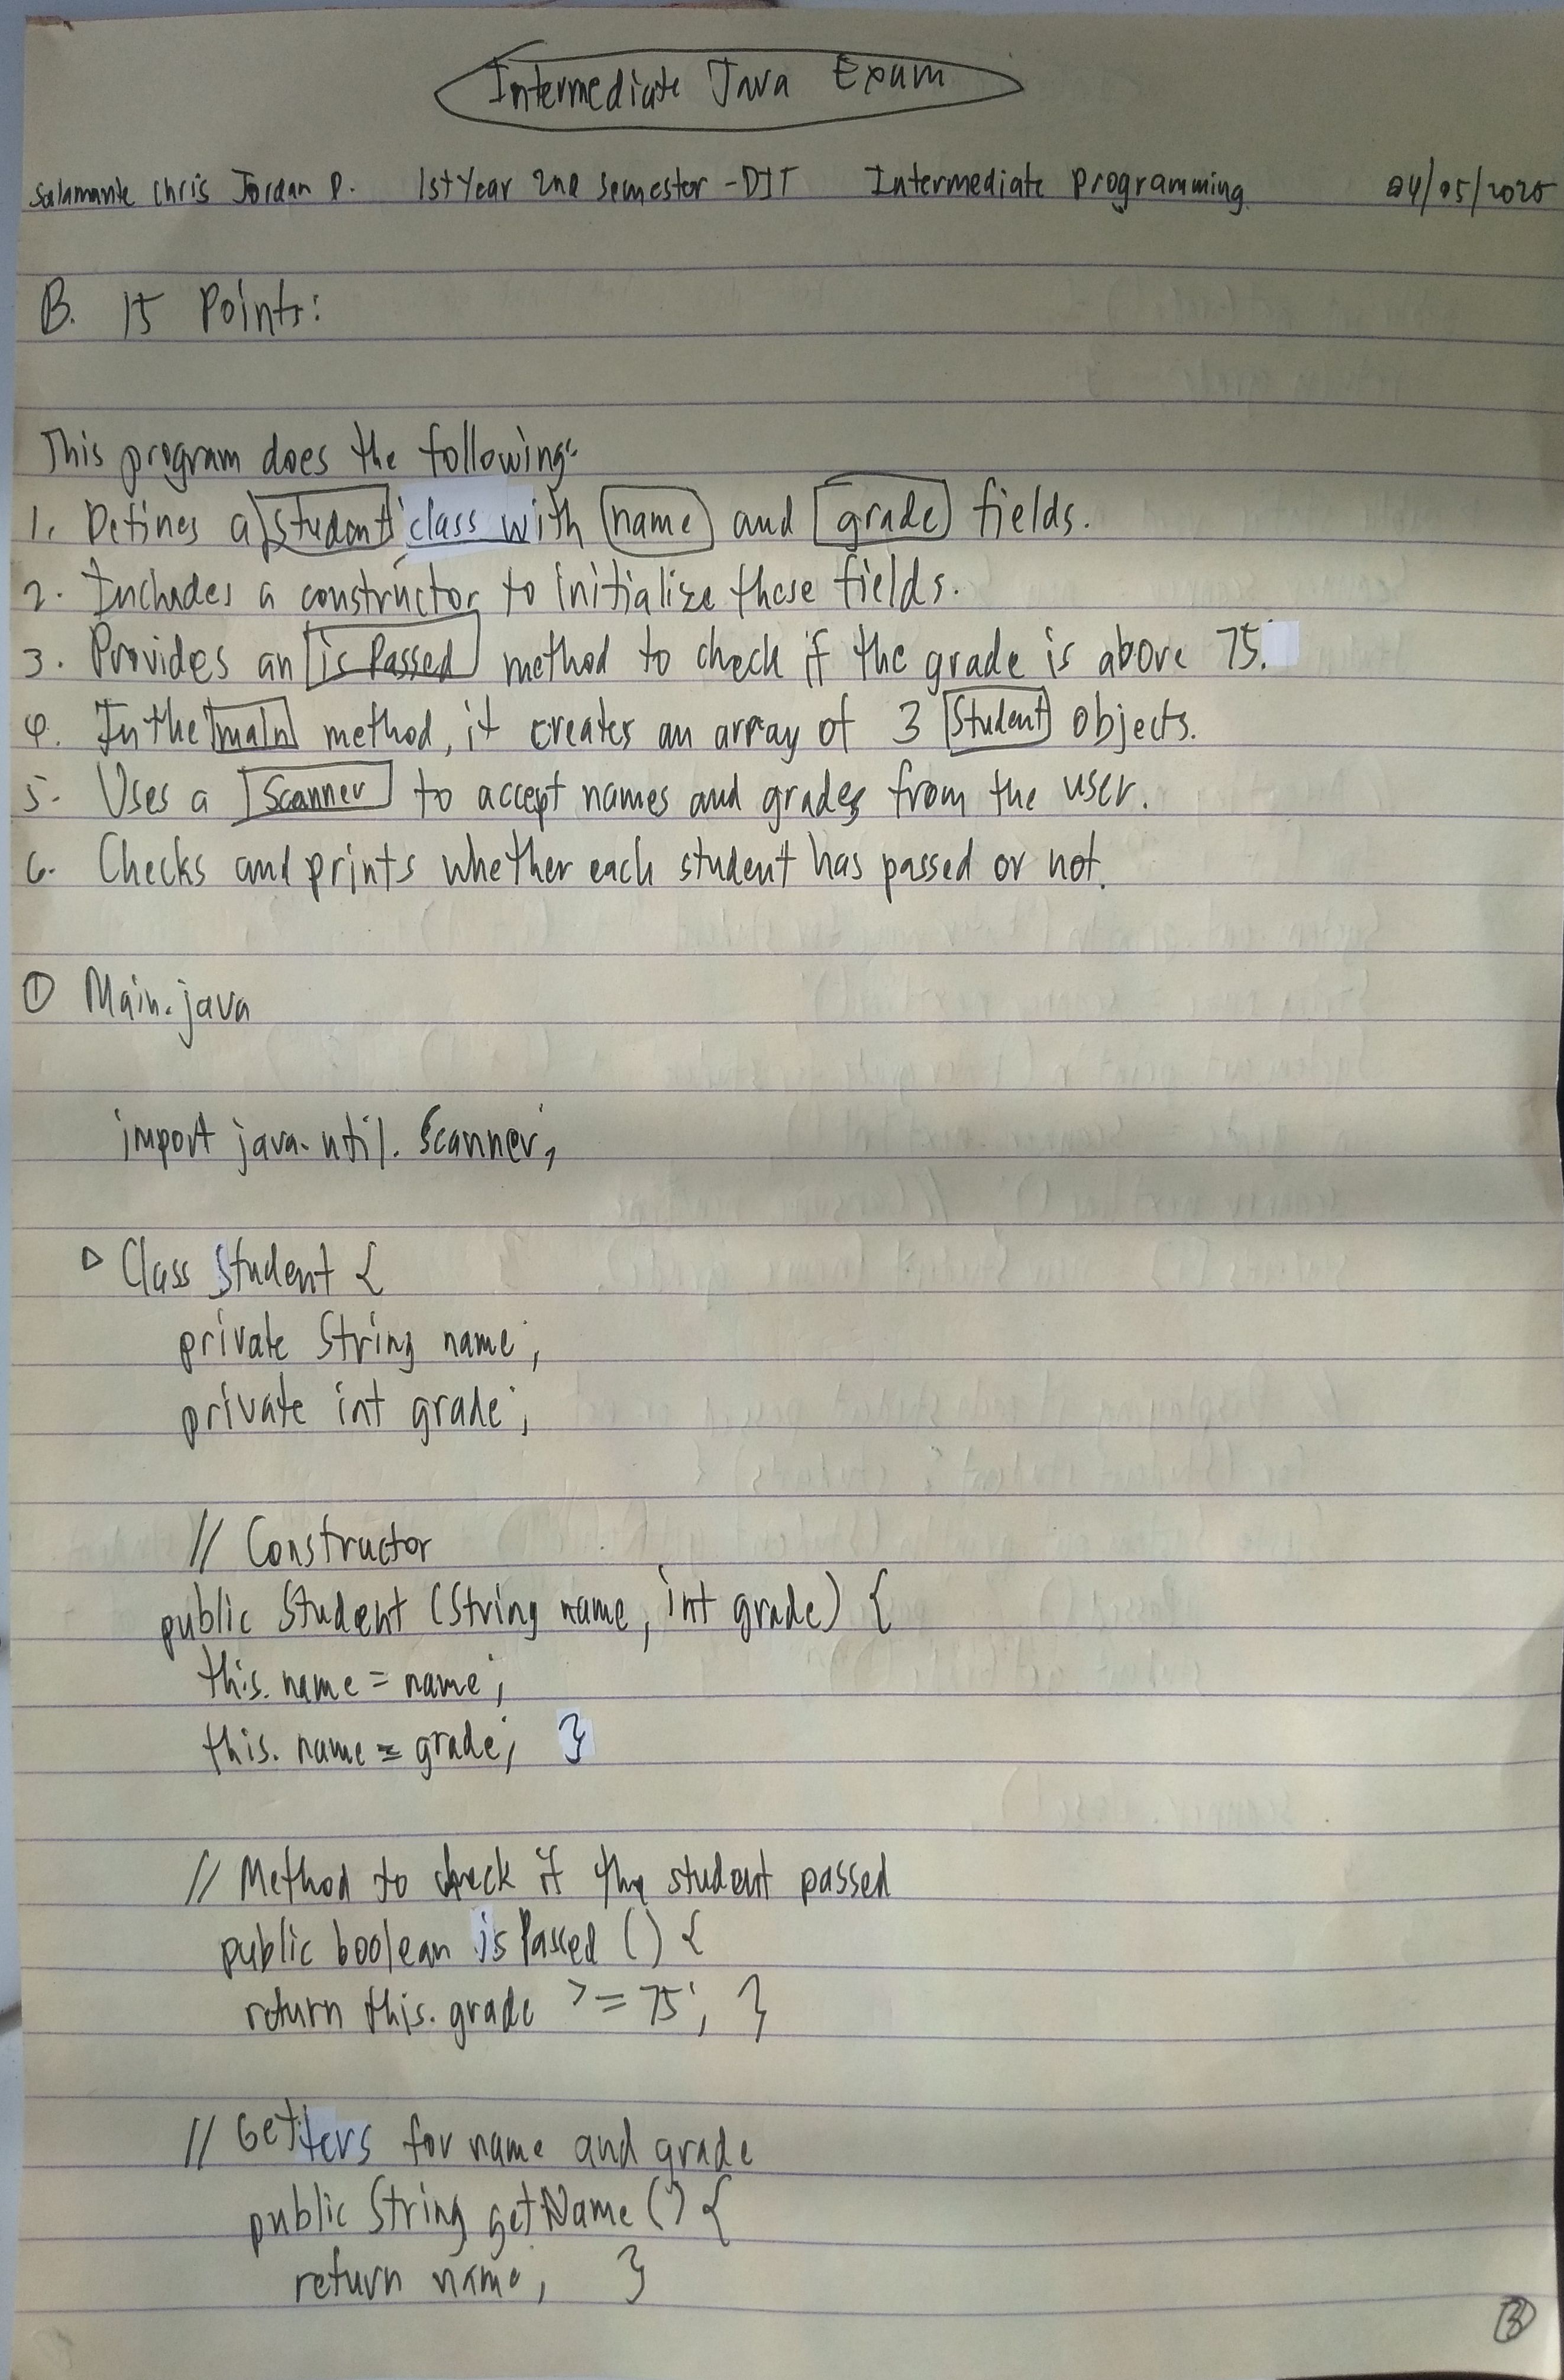 Intermediate Java Exam
Salamante Chris Jordan P. 1st Year 2nd Semester - DIT Intermediate Programming 04/05/2025
B. 15 Points:
This program does the following:
1. Defines a Student class with name and grade fields.
2. Includes a constructor to initialize these fields.
3. Provides an is Passed method to check if the grade is above 75.
4. In the main method, it creates an array of 3 Student objects.
5. Uses a Scanner to accept names and grades from the user.
6. Checks and prints whether each student has passed or not.
① Main.java
import java.util.Scanner;
▷ Class Student {
private String name;
private int grade;
// Constructor
public Student (String name, int grade) {
this.name = name;
this.name = grade; }
// Method to check if the student passed
public boolean isPassed () {
return this.grade >= 75; }
// Getters for name and grade
public String getName () {
return name; }
③